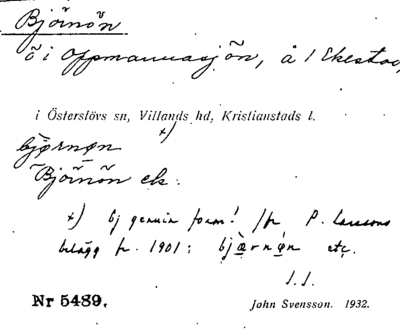 Björnön
ö i Oppmannasjön, å 1 Ekestad,
i Österslövs sn, Villands hd, Kristianstads l.
x)
bjørnøn
Björnön ek.
x) Ej genuin form! Jfr P. Larssons
belägg fr. 1901: bjæ̀rnøn etc.
J.S.
Nr 5489. John Svensson. 1932.